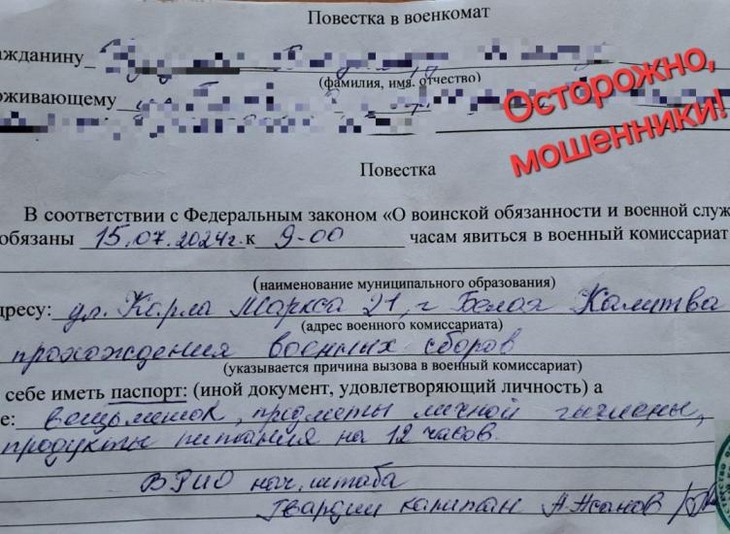 Повестка в военкомат
ажданину
(фамилия, имя, отчество)
Осторожно,
мошенники!
оживающему
Повестка
В соответствии с Федеральным законом «О воинской обязанности и военной служ
обязаны 15.07.2024г. к 9-00 часам явиться в военный комиссариат
(наименование муниципального образования)
дресу: ул. Карла Маркса 21, г Белая Калитва
(адрес военного комиссариата)
прохождения военных сборов
(указывается причина вызова в военный комиссариат)
себе иметь паспорт: (иной документ, удовлетворяющий личность) а
е: вещьмешок, предметы личной гигиены,
продукты питания на 12 часов.
ВРИО нач. штаба
Гвардии капитан